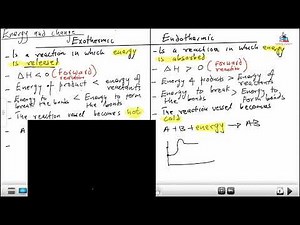 Energy and change
Exothermic
- Is a reaction in which energy
is released
- ΔH < 0 (Forward
reaction)
- Energy of product < energy of
reactants
- Energy to break < Energy to form
the bonds the bonds
- The reaction vessel becomes hot
Endothermic
- Is a reaction in which energy
is absorbed
- ΔH > 0 (Forward
reaction)
- Energy of products > Energy of
reactants
- Energy to break > Energy to
the bonds form bonds
- The reaction vessel becomes
cold
A + B + energy → AB